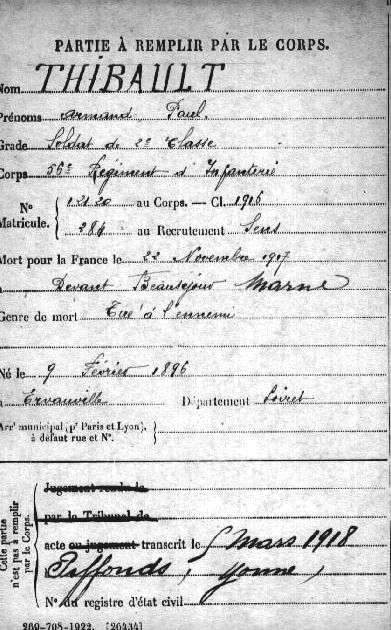 PARTIE À REMPLIR PAR LE CORPS.
Nom THIBAULT
Prénoms Armand, Paul.
Grade Soldat de 2e Classe
Corps 56e Régiment d'Infanterie
N° Matricule. { 12120 au Corps. — Cl. 1916
284 au Recrutement Sens
Mort pour la France le 22 Novembre 1917
à Devant Beauséjour Marne
Genre de mort Tué à l'ennemi
Né le 9 Février 1896
à Ervauville Département Loiret
Arrt municipal (pr Paris et Lyon), à défaut rue et N°. }
Cette partie n'est pas à remplir par le Corps.
Jugement rendu le
par le Tribunal de
acte ou jugement transcrit le 5 Mars 1918
Piffonds, Yonne,
N° du registre d'état civil
269-708-1922. [26434]